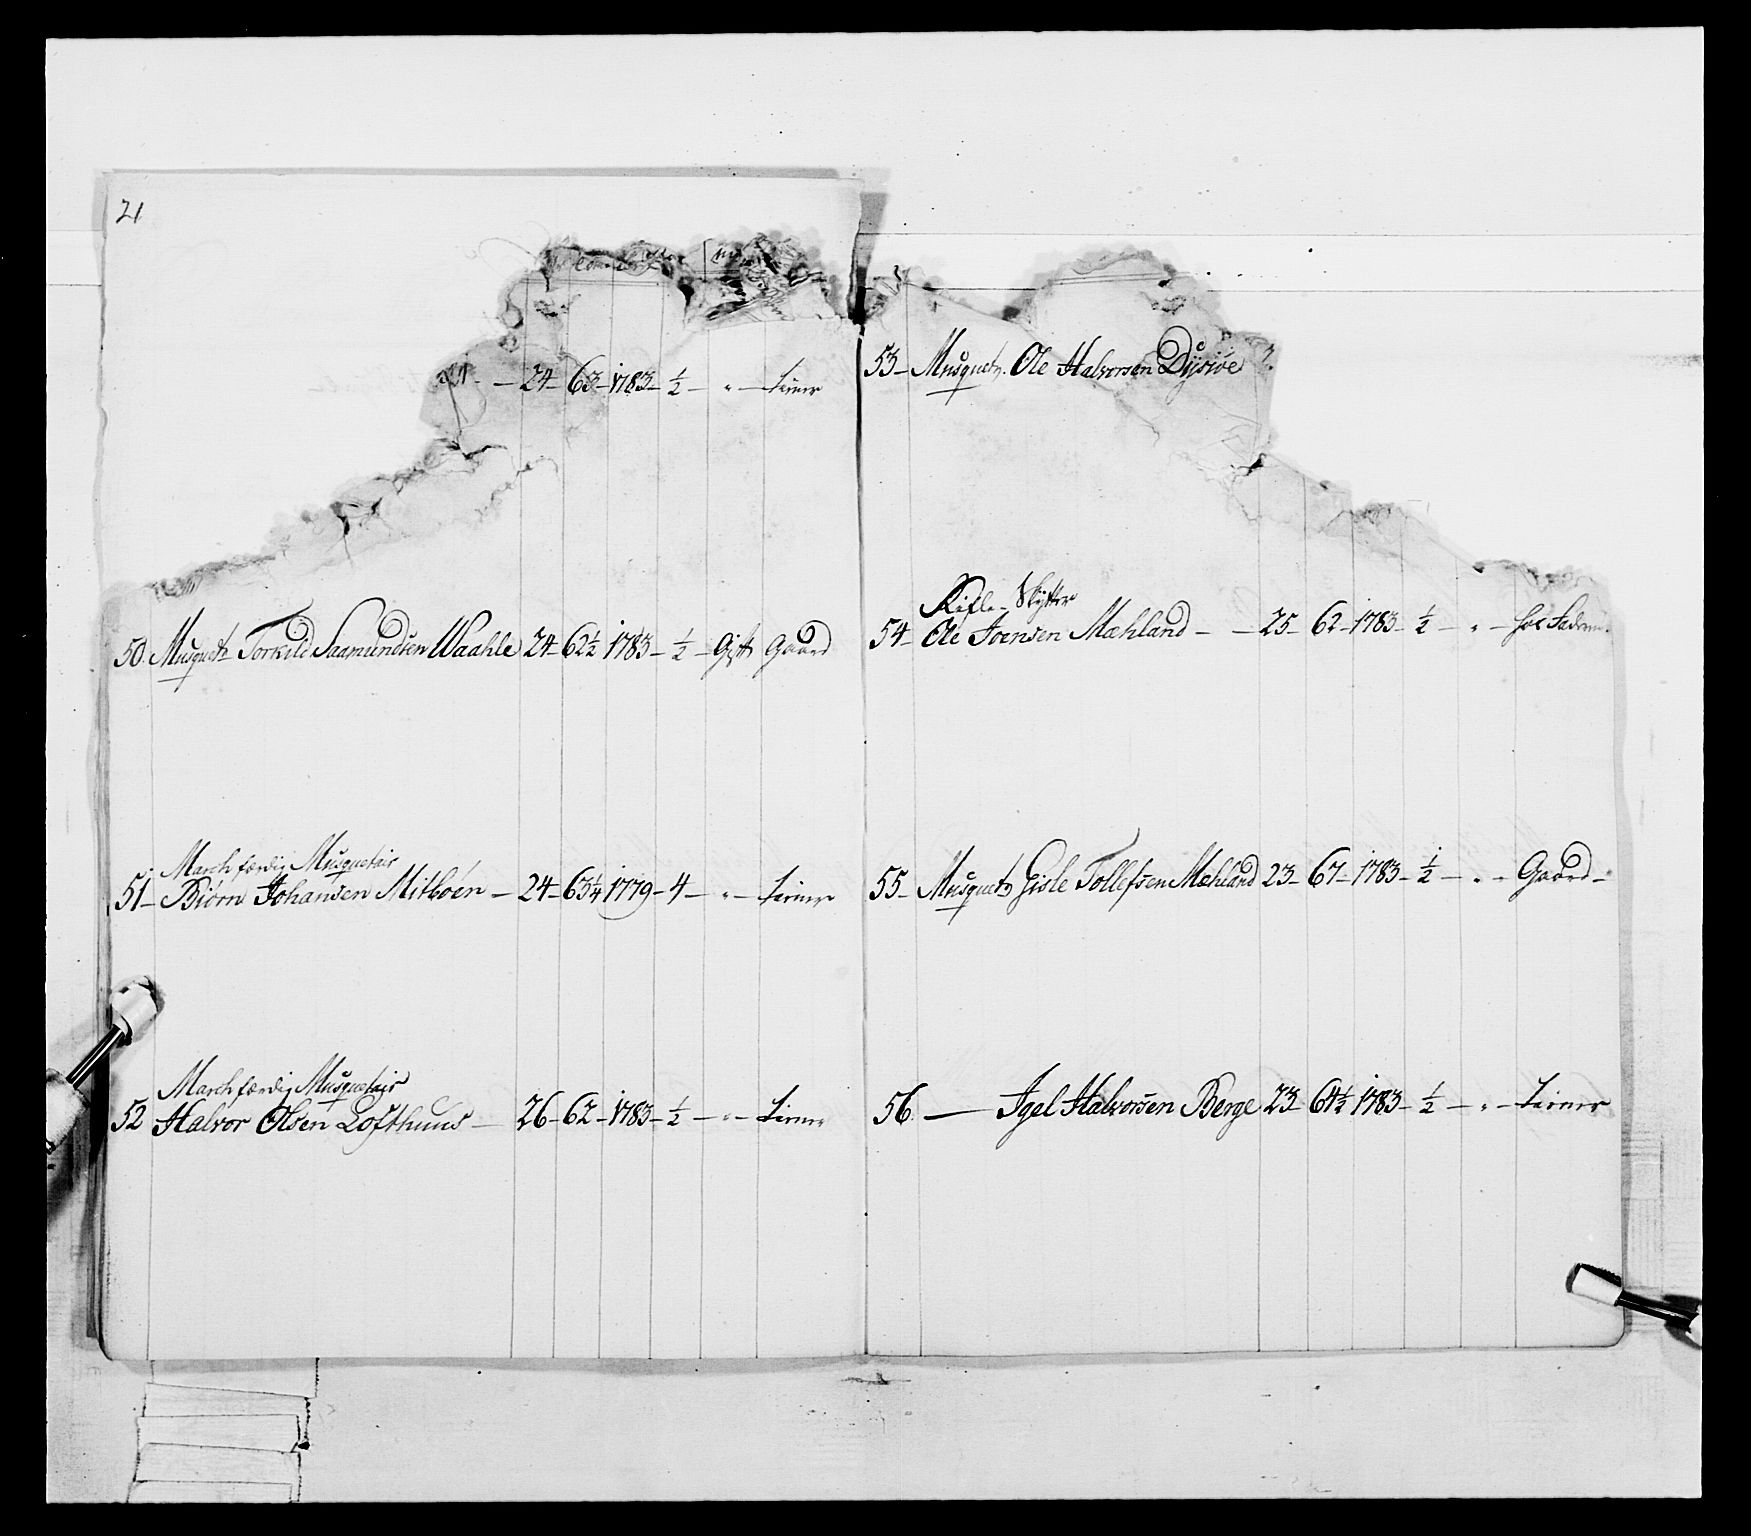 21
24 – 63 – 1783 – ½ – " – tiener
50. Musquet Torkild Saamundsen Waahle 24 – 62½ 1783 – ½ – Gift Gaard
Marchfærdig Musquetair
51 – Biørn Johansen Mitbøen – 24 – 63¼ 1779 – 4 – " – tiener
Marchfærdig Musquetair
52 Halvor Olsen Lofthuus – 26 – 62 – 1783 – ½ – " – tiener
53 – Musquet. Ole Halvorsen Dysiøe
Rifle-Skytter
54 – Ole Joensen Mæhland – – 25 – 62 – 1783 – ½ – " – hos Faderen.
55 – Musquet Gisle Tollefsen Mæhland 23 – 67 – 1783 – ½ – " – Gaard –
56. — Igel Halvorsen Berge 23 – 61½ 1783 – ½ – " – tiener